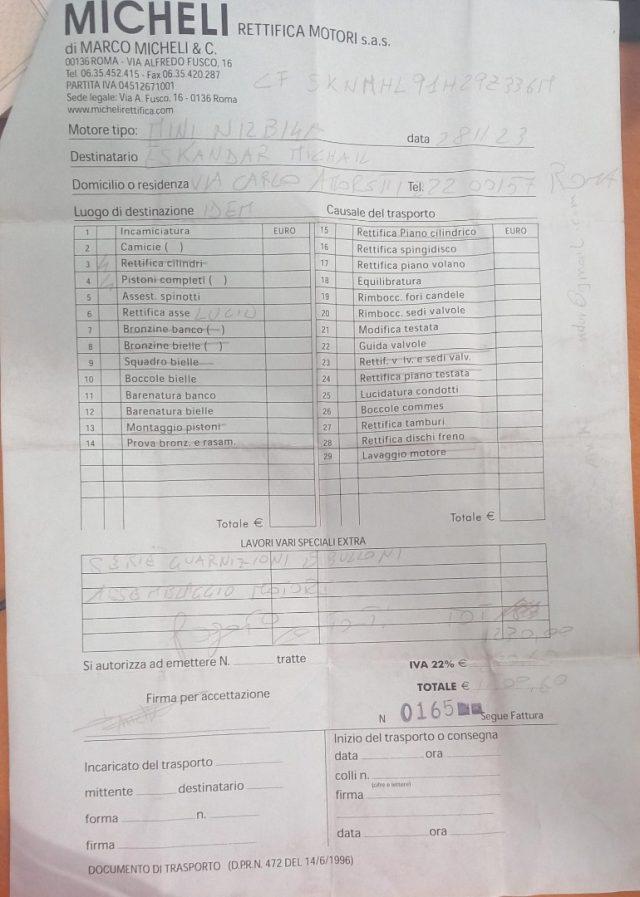 MICHELI RETTIFICA MOTORI s.a.s.
di MARCO MICHELI & C.
00136 ROMA - VIA ALFREDO FUSCO, 16
Tel. 06.35.452.415 - Fax 06.35.420.287
PARTITA IVA 04512671001
Sede legale: Via A. Fusco, 16 - 0136 Roma
www.michelirettifica.com
CF SKNMHL91H29Z336M
Motore tipo: MINI N12B14A data 281123
Destinatario ESKANDAR MICHAIL
Domicilio o residenza VIA CARLO Tel. 22 00157 ROMA
Luogo di destinazione IDEM Causale del trasporto
EURO
1 Incamiciatura
2 Camicie ( )
3 4 Rettifica cilindri
4 4 Pistoni completi ( )
5 Assest. spinotti
6 Rettifica asse LUCID
7 Bronzine banco ( )
8 Bronzine bielle ( )
9 Squadro bielle
10 Boccole bielle
11 Barenatura banco
12 Barenatura bielle
13 Montaggio pistoni
14 Prova bronz. e rasam.
Totale €
EURO
15 Rettifica Piano cilindrico
16 Rettifica spingidisco
17 Rettifica piano volano
18 Equilibratura
19 Rimbocc. fori candele
20 Rimbocc. sedi valvole
21 Modifica testata
22 Guida valvole
23 Rettif. v lv. e sedi valv.
24 Rettifica piano testata
25 Lucidatura condotti
26 Boccole commes
27 Rettifica tamburi
28 Rettifica dischi freno
29 Lavaggio motore
Totale €
LAVORI VARI SPECIALI EXTRA
SERIE GUARNIZIONI E BULLONI
ASSEMBLAGGIO MOTORE
TOT
Si autorizza ad emettere N. tratte
IVA 22% €
TOTALE €
Firma per accettazione
N 0165 Segue Fattura
Incaricato del trasporto
mittente destinatario
forma n.
firma
Inizio del trasporto o consegna
data ora
colli n.
(cifre o lettere)
firma
data ora
DOCUMENTO DI TRASPORTO (D.P.R.N. 472 DEL 14/6/1996)